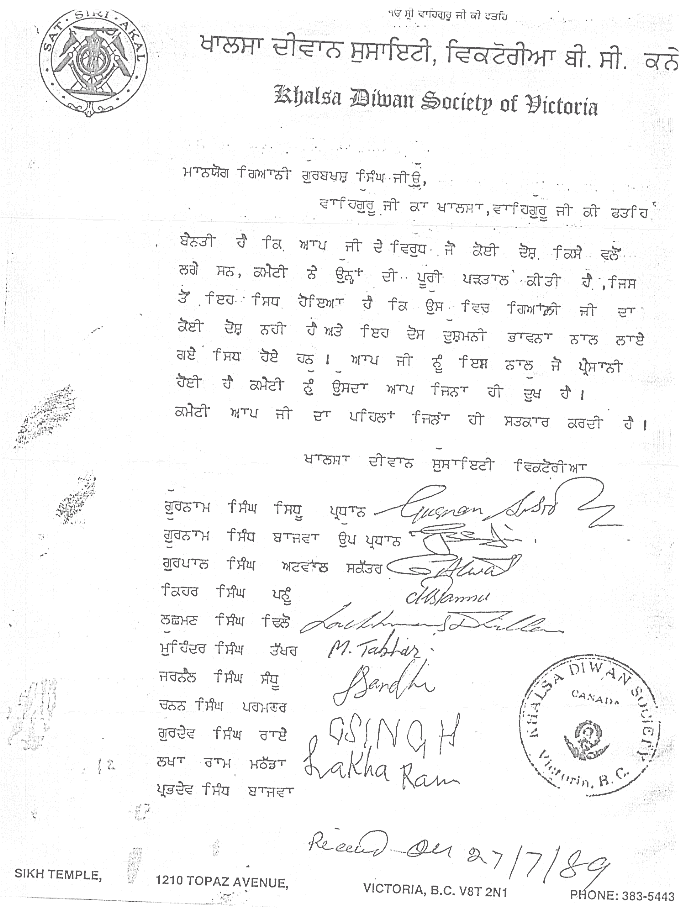 SAT SIRI AKAL
ੴ ਸ੍ਰੀ ਵਾਹਿਗੁਰੂ ਜੀ ਕੀ ਫਤਹਿ
ਖਾਲਸਾ ਦੀਵਾਨ ਸੁਸਾਇਟੀ, ਵਿਕਟੋਰੀਆ ਬੀ. ਸੀ. ਕਨੇ
Khalsa Diwan Society of Victoria
ਮਾਨਯੋਗ ਗਿਆਨੀ ਗੁਰਬਖਸ਼ ਸਿੰਘ ਜੀਉ,
ਵਾਹਿਗੁਰੂ ਜੀ ਕਾ ਖਾਲਸਾ, ਵਾਹਿਗੁਰੂ ਜੀ ਕੀ ਫਤਹਿ
ਬੇਨਤੀ ਹੈ ਕਿ ਆਪ ਜੀ ਦੇ ਵਿਰੁਧ ਜੋ ਕੋਈ ਦੋਸ਼ ਕਿਸੇ ਵਲੋਂ
ਲਗੇ ਸਨ, ਕਮੇਟੀ ਨੇ ਉਨ੍ਹਾਂ ਦੀ ਪੂਰੀ ਪੜਤਾਲ ਕੀਤੀ ਹੈ, ਜਿਸ
ਤੋਂ ਇਹ ਸਿਧ ਹੋਇਆ ਹੈ ਕਿ ਉਸ ਵਿਚ ਗਿਆਨੀ ਜੀ ਦਾ
ਕੋਈ ਦੋਸ਼ ਨਹੀ ਹੈ ਅਤੇ ਇਹ ਦੋਸ ਦੁਸ਼ਮਨੀ ਭਾਵਨਾ ਨਾਲ ਲਾਏ
ਗਏ ਸਿਧ ਹੋਏ ਹਨ । ਆਪ ਜੀ ਨੂੰ ਇਸ ਨਾਲ ਜੋ ਪ੍ਰੇਸਾਨੀ
ਹੋਈ ਹੈ ਕਮੇਟੀ ਨੂੰ ਉਸਦਾ ਆਪ ਜਿਨਾ ਹੀ ਦੁਖ ਹੈ ।
ਕਮੇਟੀ ਆਪ ਜੀ ਦਾ ਪਹਿਲਾਂ ਜਿਨਾਂ ਹੀ ਸਤਕਾਰ ਕਰਦੀ ਹੈ ।
ਖਾਲਸਾ ਦੀਵਾਨ ਸੁਸਾਇਟੀ ਵਿਕਟੋਰੀਆ
ਗੁਰਨਾਮ ਸਿੰਘ ਸਿਧੂ ਪ੍ਰਧਾਨ Gurnam
ਗੁਰਨਾਮ ਸਿੰਘ ਬਾਜਵਾ ਉਪ ਪ੍ਰਧਾਨ
ਗੁਰਪਾਲ ਸਿੰਘ ਅਟਵਾਲ ਸਕੱਤਰ
ਕਿਹਰ ਸਿੰਘ ਪਨੂੰ
ਲਛਮਣ ਸਿੰਘ ਢਿਲੋਂ
ਮੁਹਿੰਦਰ ਸਿੰਘ ਤੱਖਰ M. Takhar
ਜਰਨੈਲ ਸਿੰਘ ਸੰਧੂ JSandhu
ਚਨਨ ਸਿੰਘ ਪਰਮਾਰ
ਗੁਰਦੇਵ ਸਿੰਘ ਰਾਏ GSINGH
ਲਖਾ ਰਾਮ ਮਠੱਡਾ Lakha Ram
ਪ੍ਰਭਦੇਵ ਸਿੰਘ ਬਾਜਵਾ
KHALSA DIWAN SOCIETY
CANADA
Victoria, B.C.
on 27/7/89
SIKH TEMPLE, 1210 TOPAZ AVENUE, VICTORIA, B.C. V8T 2N1 PHONE: 383-5443